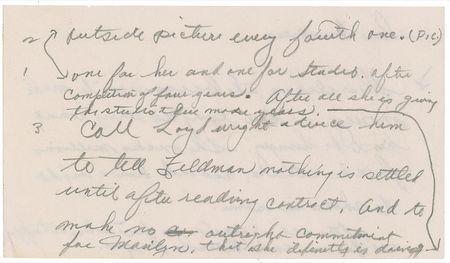 2 outside picture every fourth one. (Pic)
1 one for her and one for Studio. after
completion of four years. After all she is giving
the studio
3 Call Loyd wright advice him
to tell Feldman nothing is settled
until after reading contract. And to
make no outright commitment
for Marilyn, that she definitely is doing